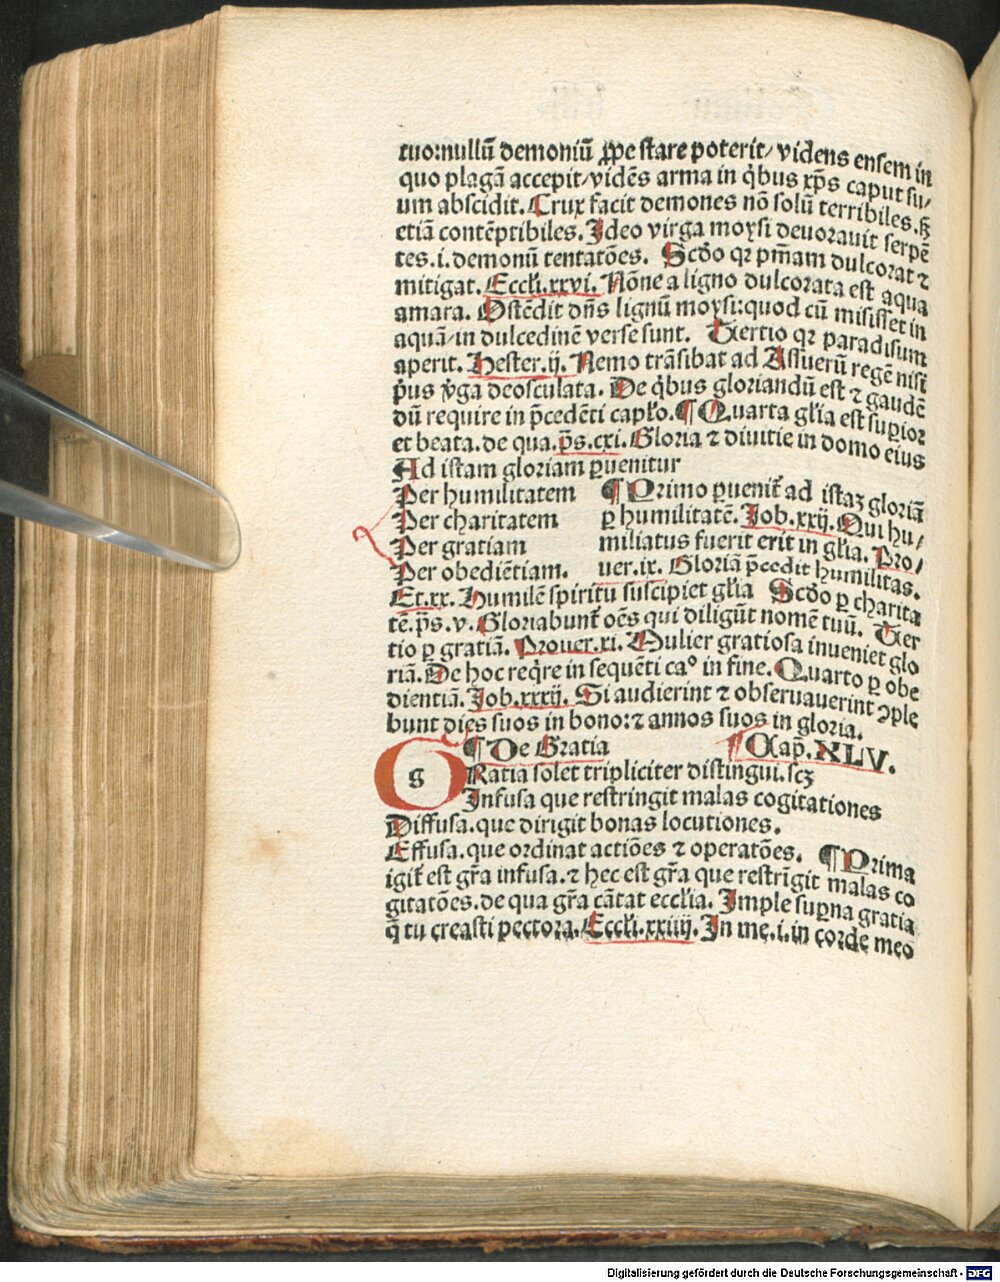 tuo:nullū demoniū ꝓpe stare poterit/ videns ensem in
quo plagā accepit/vidēs arma in q̇bus xp̄s caput su/
um abscidit. Crux facit demones nō solū terribiles.sꝫ
etiā contēptibiles. Ideo virga moysi deuorauit serpē
tes.i.demonū tentatōes. Scd̄o qꝛ pm̄am dulcorat ⁊
mitigat. Eccl̄i.xxvi. Nōne a ligno dulcorata est aqua
amara. Ostēdit dn̄s lignū moysi:quod cū misisset in
aquā/in dulcedinē verse sunt. Tertio qꝛ paradisum
aperit. Hester.ij. Nemo trāsibat ad Assuerū regē nisi
p̄us v̄ga deosculata. De q̇bus gloriandū est ⁊ gaudē
dū require in p̄cedēti capl̓o. ¶ Quarta gl̓ia est suꝑior
et beata.de qua.p̄s.cxi. Gloria ⁊ diuitie in domo eius
Ad istam gloriam ꝑuenitur
Per humilitatem
Per charitatem
Per gratiam
Per obediētiam.
¶ Primo ꝑuenit̄ ad istaꝫ gloriā
ꝑ humilitatē. Iob.xxij. Qui hu/
miliatus fuerit erit in gl̓ia. Pro/
uer.ix. Gloriā p̄cedit humilitas.
Et.xx. Humilē spiritu suscipiet gl̓ia Scd̄o ꝑ charita
tē.p̄s.v. Gloriabunt̄ oēs qui diligūt nomē tuū. Ter
tio ꝑ gratiā. Prouer.xi. Mulier gratiosa inueniet glo
riā. De hoc req̇re in sequēti ca° in fine. Quarto ꝑ obe
dientiā. Iob.xxxij. Si audierint ⁊ obseruauerint ꝯple
bunt dies suos in bono:⁊ annos suos in gloria.
¶ De Gratia ¶ Cap̄. XLV.
g RAtia solet tripliciter distingui.scꝫ
Infusa que restringit malas cogitationes
Diffusa.que dirigit bonas locutiones.
Effusa.que ordinat actiōes ⁊ operatōes. ¶ Prima
igit̄ est gr̄a infusa.⁊ hec est gr̄a que restrīgit malas co
gitatōes.de qua gr̄a cātat eccl̓ia. Imple suꝑna gratia
q̄ tu creasti pectora. Eccl̄i.xxiiij. In me.i.in corde meo
Digitalisierung gefördert durch die Deutsche Forschungsgemeinschaft - DFG